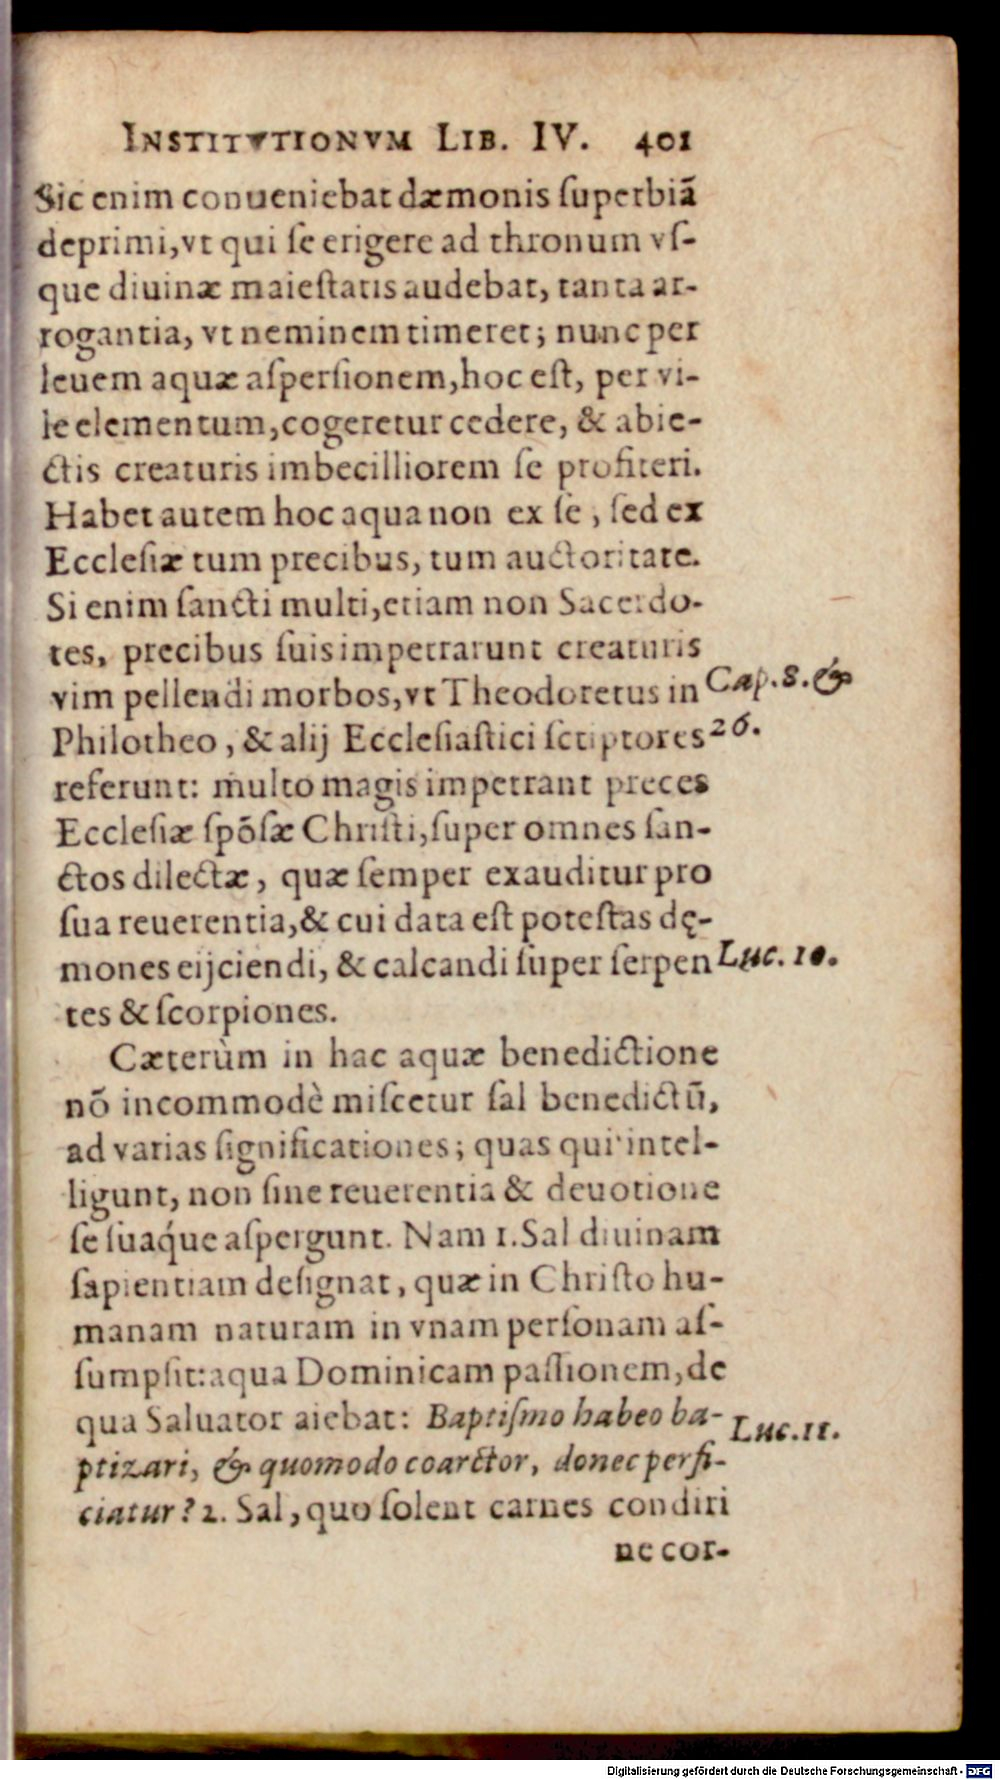 INSTITVTIONVM LIB. IV. 401
Sic enim conueniebat dæmonis ſuperbiã
deprimi, vt qui ſe erigere ad thronum vſ-
que diuinæ maieſtatis audebat, tanta ar-
rogantia, vt neminem timeret; nunc per
leuem aquæ aſperſionem, hoc eſt, per vi-
le elementum, cogeretur cedere, & abie-
ctis creaturis imbecilliorem ſe profiteri.
Habet autem hoc aqua non ex ſe, ſed ex
Eccleſiæ tum precibus, tum auctoritate.
Si enim ſancti multi, etiam non Sacerdo-
tes, precibus ſuis impetrarunt creaturis
vim pellendi morbos, vt Theodoretus in Cap. 8. &
Philotheo, & alij Eccleſiaſtici ſcriptores 26.
referunt: multo magis impetrant preces
Eccleſiæ ſpõſæ Chriſti, ſuper omnes ſan-
ctos dilectæ, quæ ſemper exauditur pro
ſua reuerentia, & cui data eſt poteſtas dę-
mones eijciendi, & calcandi ſuper ſerpen Luc. 10.
tes & ſcorpiones.
Cæterùm in hac aquæ benedictione
nõ incommodè miſcetur ſal benedictũ,
ad varias ſignificationes; quas qui intel-
ligunt, non ſine reuerentia & deuotione
ſe ſuaq́ue aſpergunt. Nam 1. Sal diuinam
ſapientiam deſignat, quæ in Chriſto hu-
manam naturam in vnam perſonam aſ-
ſumpſit: aqua Dominicam paſſionem, de
qua Saluator aiebat: Baptiſmo habeo ba- Luc. 11.
ptizari, & quomodo coarctor, donec perfi-
ciatur? 2. Sal, quo ſolent carnes condiri
ne cor-
Digitalisierung gefördert durch die Deutsche Forschungsgemeinschaft - DFG